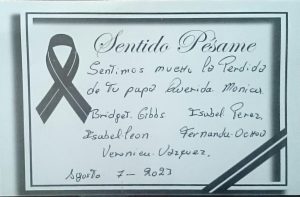 Sentido Pésame
Sentimos mucho la Perdida
de Tu papá Querida Monica
Bridget. Gibbs Isabel Perez,
Isabel leon Fernanda Ochoa
Veronica Vázquez,
Agosto 7 - 2023